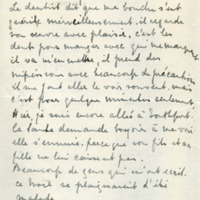 Le dentiste dit que ma bouche s'est
guérite merveilleusement. il regarde
son oeuvre avec plaisir, c'est les
dents pour manger avec que me manquent
il va mieux, il prend des
avec beaucoup de précaution
il me faut aller le voir souvent, mais
c'est pour quelque minutes seulement.
Hier, je suis encore allée à Southport.
la tante demande toujours à me voir
elle s'ennuie. parce que son fils et sa
fille ne lui causent pas.
Beaucoup de gens qui m'ont écrit
ce Noël se plaignaient d'être
malade